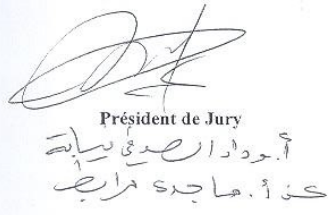 Président de Jury
أ. وداد الصدفي نيابة
عن أ. ماجدة مرابط